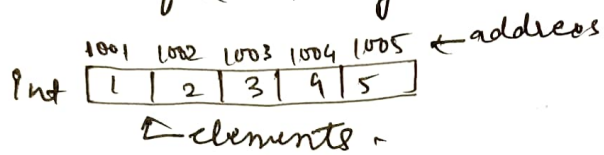 1001 1002 1003 1004 1005 ← address
Int 1 2 3 4 5
← elements.